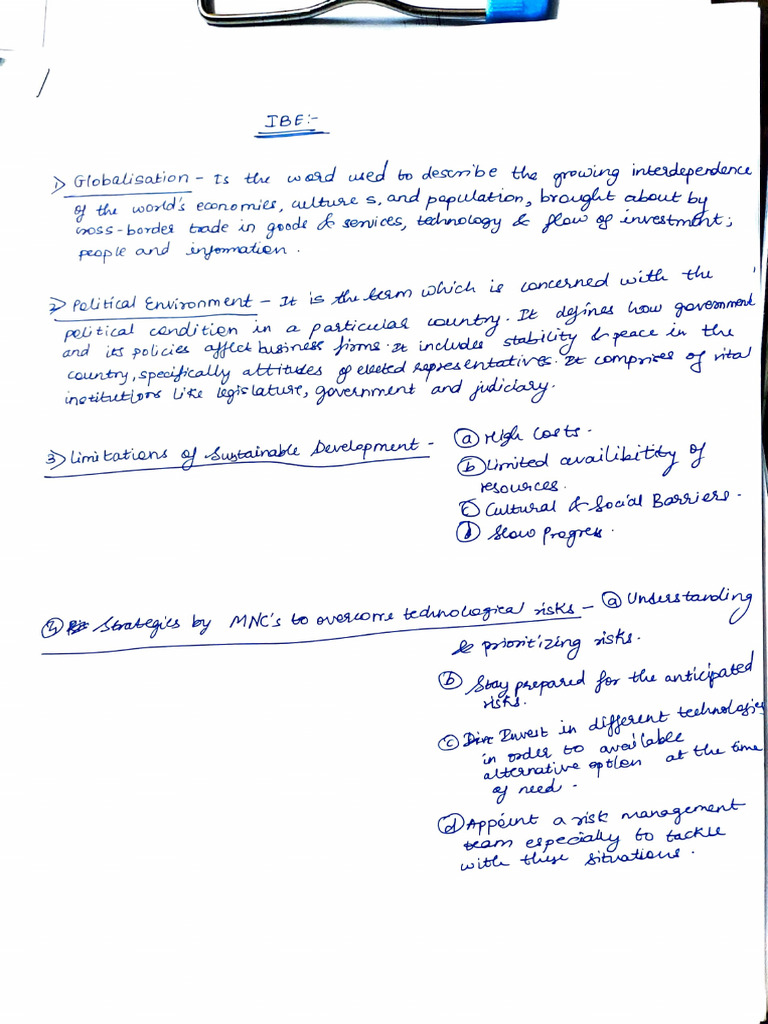 IBE:-
1) Globalisation - Is the word used to describe the growing interdependence
of the world's economies, culture s, and population, brought about by
cross-border trade in goods & services, technology & flow of investment;
people and information.
2) Political Environment - It is the term which is concerned with the
political condition in a particular country. It defines how government
and its policies affect business firms. It includes stability & peace in the
country, specifically attitudes of elected representatives. It comprises of vital
institutions like legislature, government and judiciary.
3) Limitations of Sustainable Development - (a) High Costs.
(b) Limited availibitity of
resources.
(c) Cultural & Social Barriers.
(d) Slow Progress.
4) Strategies by MNC's to overcome technological risks - (a) Understanding
& prioritizing risks.
(b) Stay prepared for the anticipated
risks.
(c) Invest in different technologies
in order to available
alternative option at the time
of need.
(d) Appoint a risk management
team especially to tackle
with these situations.